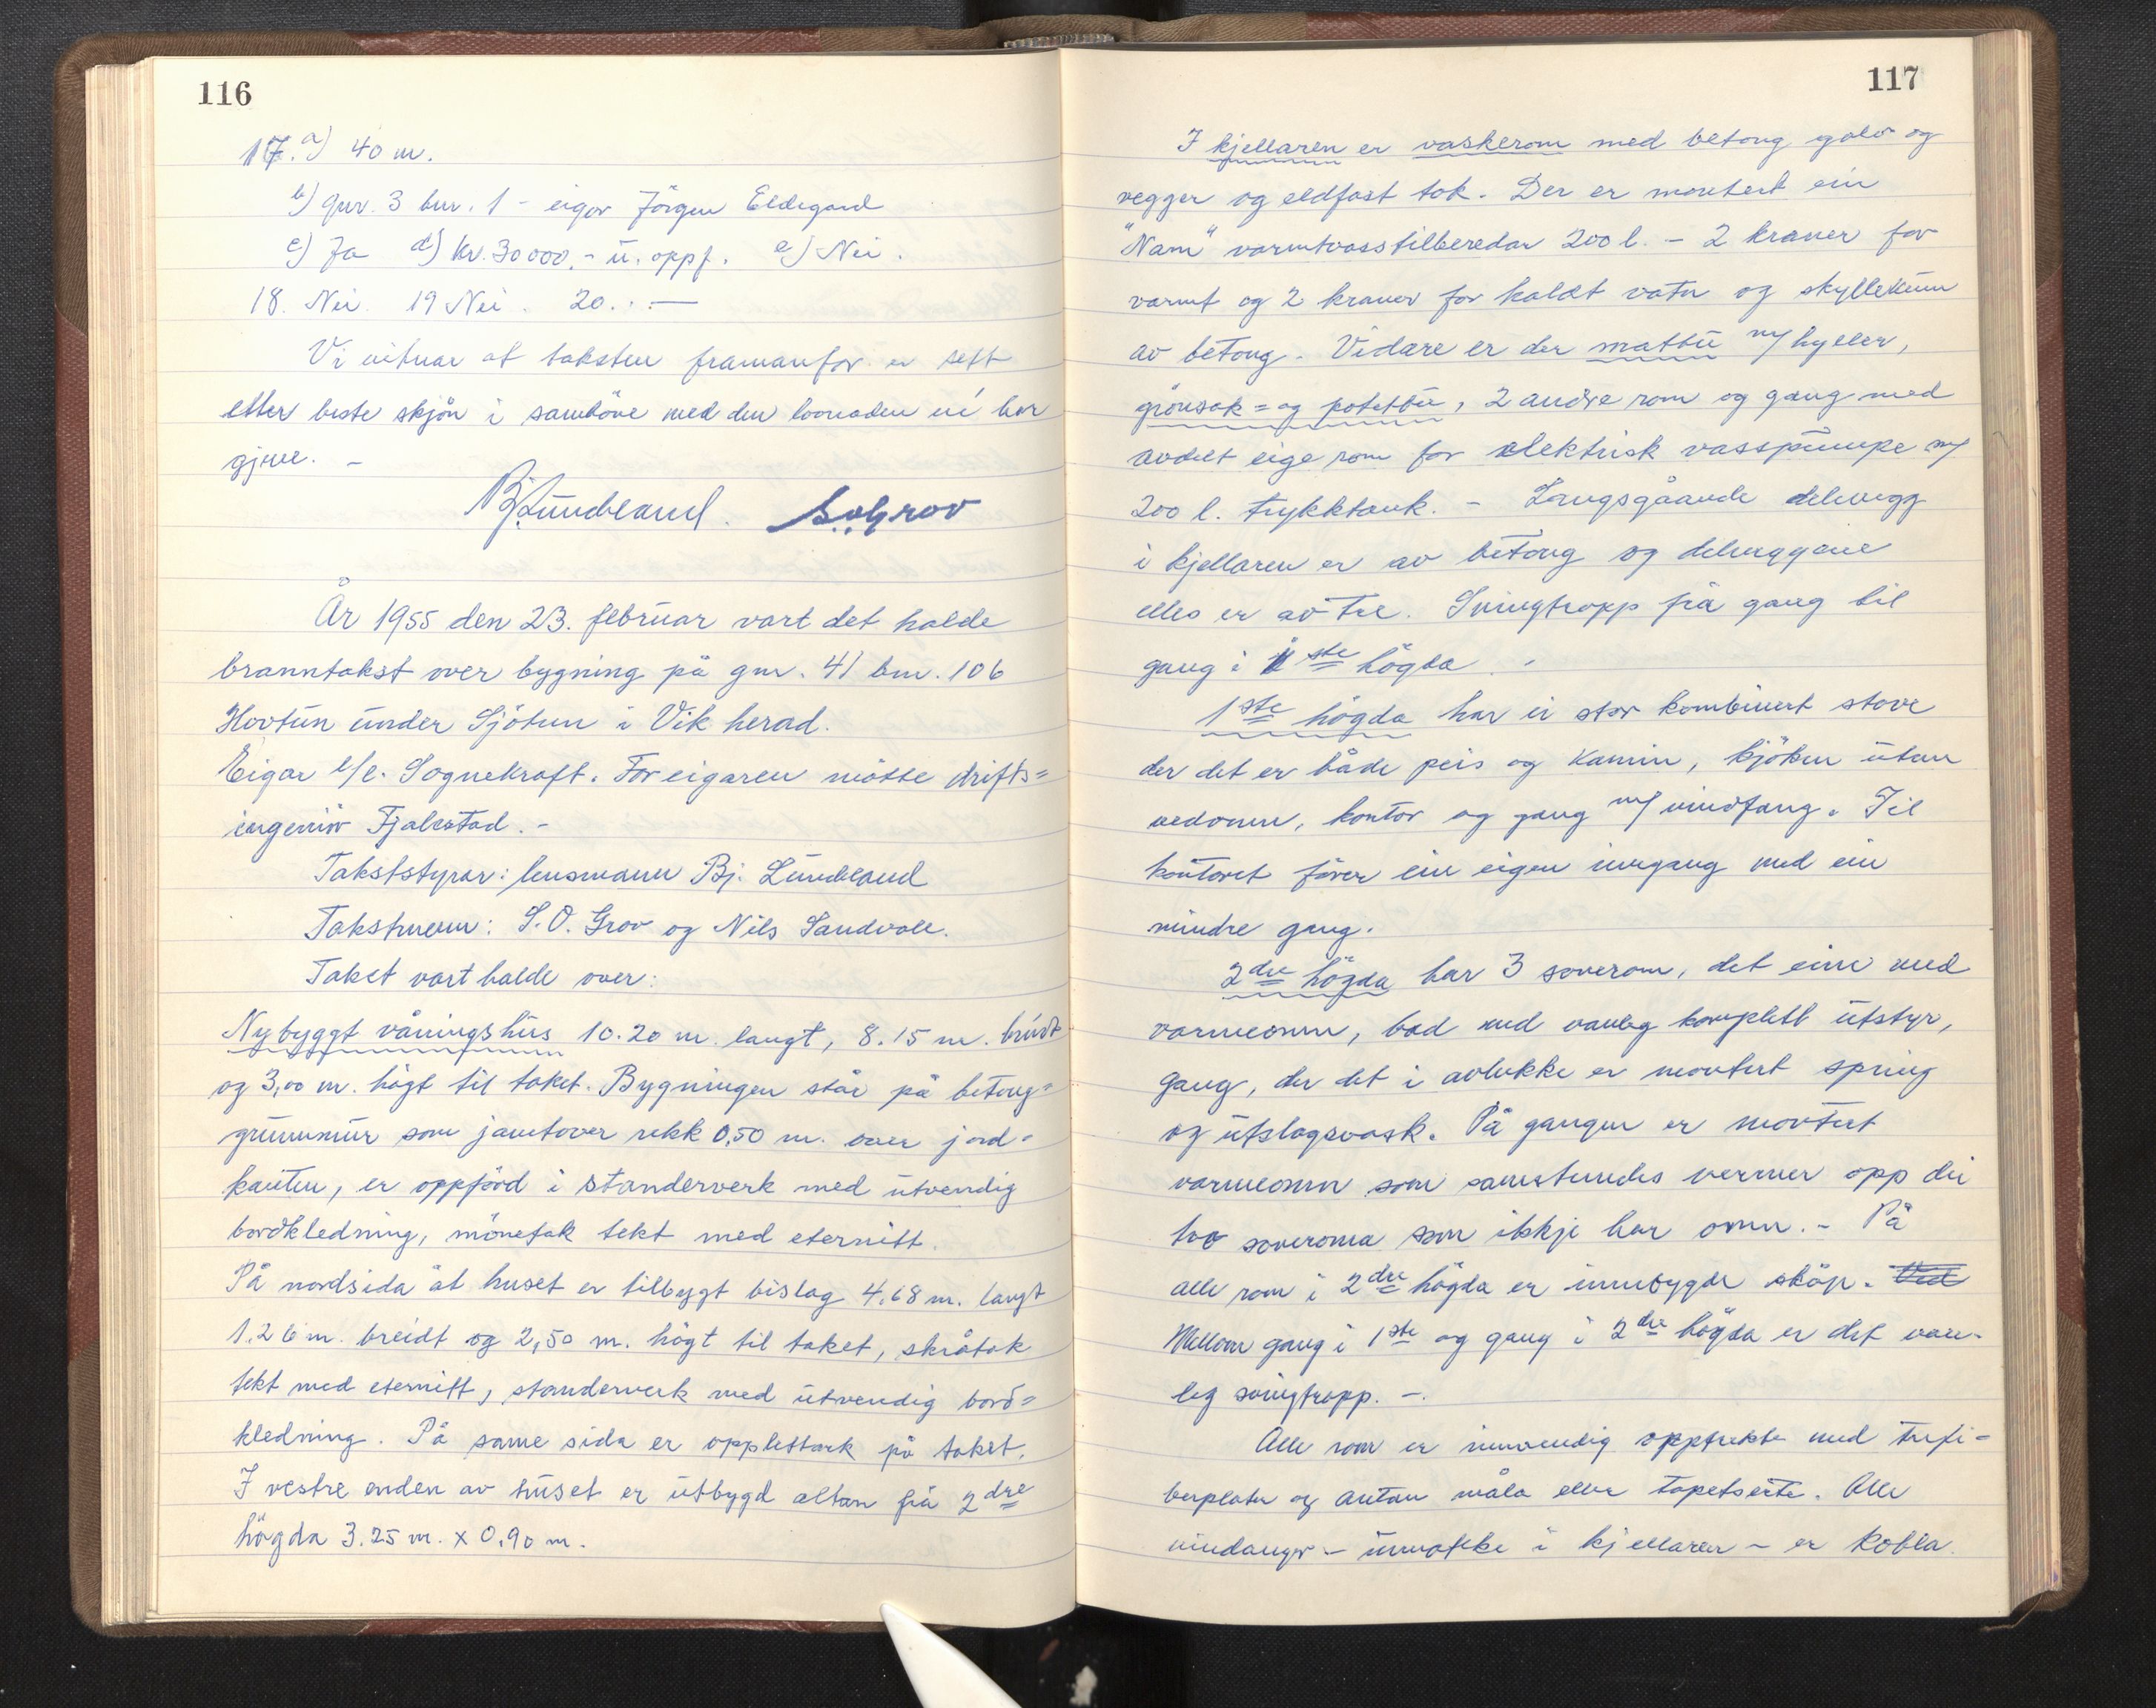 116
17. a) 40 m.
b) gnr. 3 bnr. 1 - eigar Jörgen Eldegard
c) Ja d) kr. 30000,- u. oppf. e) Nei.
18. Nei. 19 Nei. 20. . —
Vi vitnar at taksten framanfor er sett
etter beste skjön i samhöve med den lovnaden vi har
gjeve. -
Bj. Lundeland. S.O. Grov
År 1955 den 23. februar vart det halde
branntakst over bygning på gnr. 41 bnr. 106
Hovtun under Sjötun i Vik herad.
Eigar l/l. Sognekraft. For eigaren mötte drifts=
ingeniör Fjalestad. -
Takststyrar: lensmann Bj. Lundeland
Takstmenn: S.O. Grov og Nils Sandvoll.
Taket vart halde over:
Nybyggt våningshus 10.20 m. langt, 8.15 m. breidt
og 3,00 m. högt til taket. Bygningen står på betong=
grunnmur som jamtover rekk 0,50 m. over jord=
kanten, er oppförd i standerverk med utvendig
bordkledning, mönetak tekt med eternitt.
På nordsida åt huset er tilbygt bislag 4.68 m. langt
1.26 m. breidt og 2,50 m. högt til taket, skråtak
tekt med eternitt, standerverk med utvendig bord=
kledning. På same sida er opplettark på taket.
I vestre enden av huset er utbygd altan frå 2dre
högda 3.25 m. x 0.90 m.
117
I kjellaren er vaskerom med betong golv og
vegger og eldfast tak. Der er montert ein
"Nam" varmtvasstilberedar 200 l. - 2 kraner for
varmt og 2 kraner for kaldt vatn og skyllekum
av betong. Vidare er der matbu m/ hyller,
grönsak= og potetbu, 2 andre rom og gang med
avdelt eige rom for elektrisk vasspumpe m/
200 l. trykktank. - Langsgåande delevegg
i kjellaren er av betong og deleveggene
elles er av tre. Svingtropp frå gang til
gang i 1ste högda. -
1ste högda har ei stor kombinert stove
der det er både peis og kamin, kjöken utan
vedomn, kontor og gang m/ vindfang. Til
kontoret förer ein eigen inngang med ein
mindre gang.
2dre högda har 3 soverom, det eine med
varmeomn, bad med vanleg komplett utstyr,
gang, der det i avlukke er montert spring
og utslagsvask. På gangen er montert
varmeomn som samstundes vermer opp dei
too soveroma som ikkje har omn. - På
alle rom i 2dre högda er innebygde skåp. Ved
Mellom gang i 1ste og gang i 2dre högda er det van-
leg svingtropp. -.
Alle rom er innvendig opptrekte med trefi=
berplater og antan måla eller tapetserte. Alle
vindauger - unnateke i kjellaren - er kobla